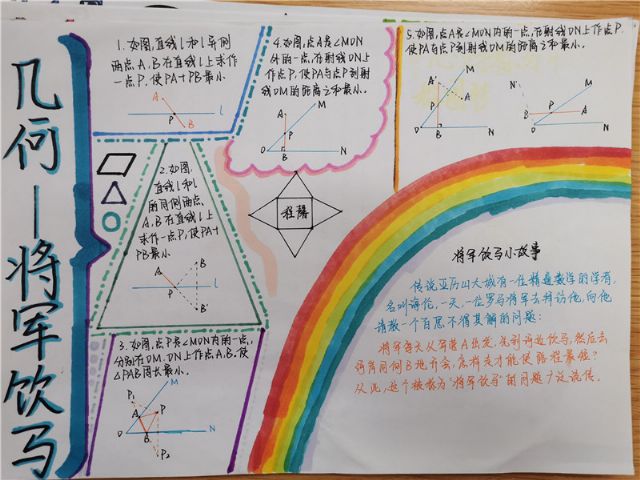 几何—将军饮马
1.如图,直线l和l异侧
两点A、B在直线l上求作
一点P,使PA+PB最小.
A
P
B
l
2.如图
直线l和l
的同侧两点
A、B在直线l上
求作一点P,使PA+
PB最小.
A
B
P
B'
3.如图,点P是∠MON内的一点,
分别在OM、ON上作点A、B,使
△PAB周长最小.
P₁
M
A
P
O
B
N
P₂
4.如图,点A是∠MON
外的一点,在射线ON上
作点P,使PA与点P到射
线OM的距离之和最小.
M
A
P
O
B
N
程馨
5.如图,点A是∠MON内的一点,在射线ON上作点P,
使PA与点P到射线OM的距离之和最小.
A'
M
A
P
O
B
N
N'
M
B
A
P
O
N
将军饮马小故事
传说亚历山大城有一位精通数学的学者,
名叫海伦,一天,一位罗马将军去拜访他,向他
请教一个百思不得其解的问题:
将军每天从军营A出发,先到河边饮马,然后去
河岸同侧B地开会,怎样走才能使路程最短?
从此,这个被称为“将军饮马”的问题广泛流传.